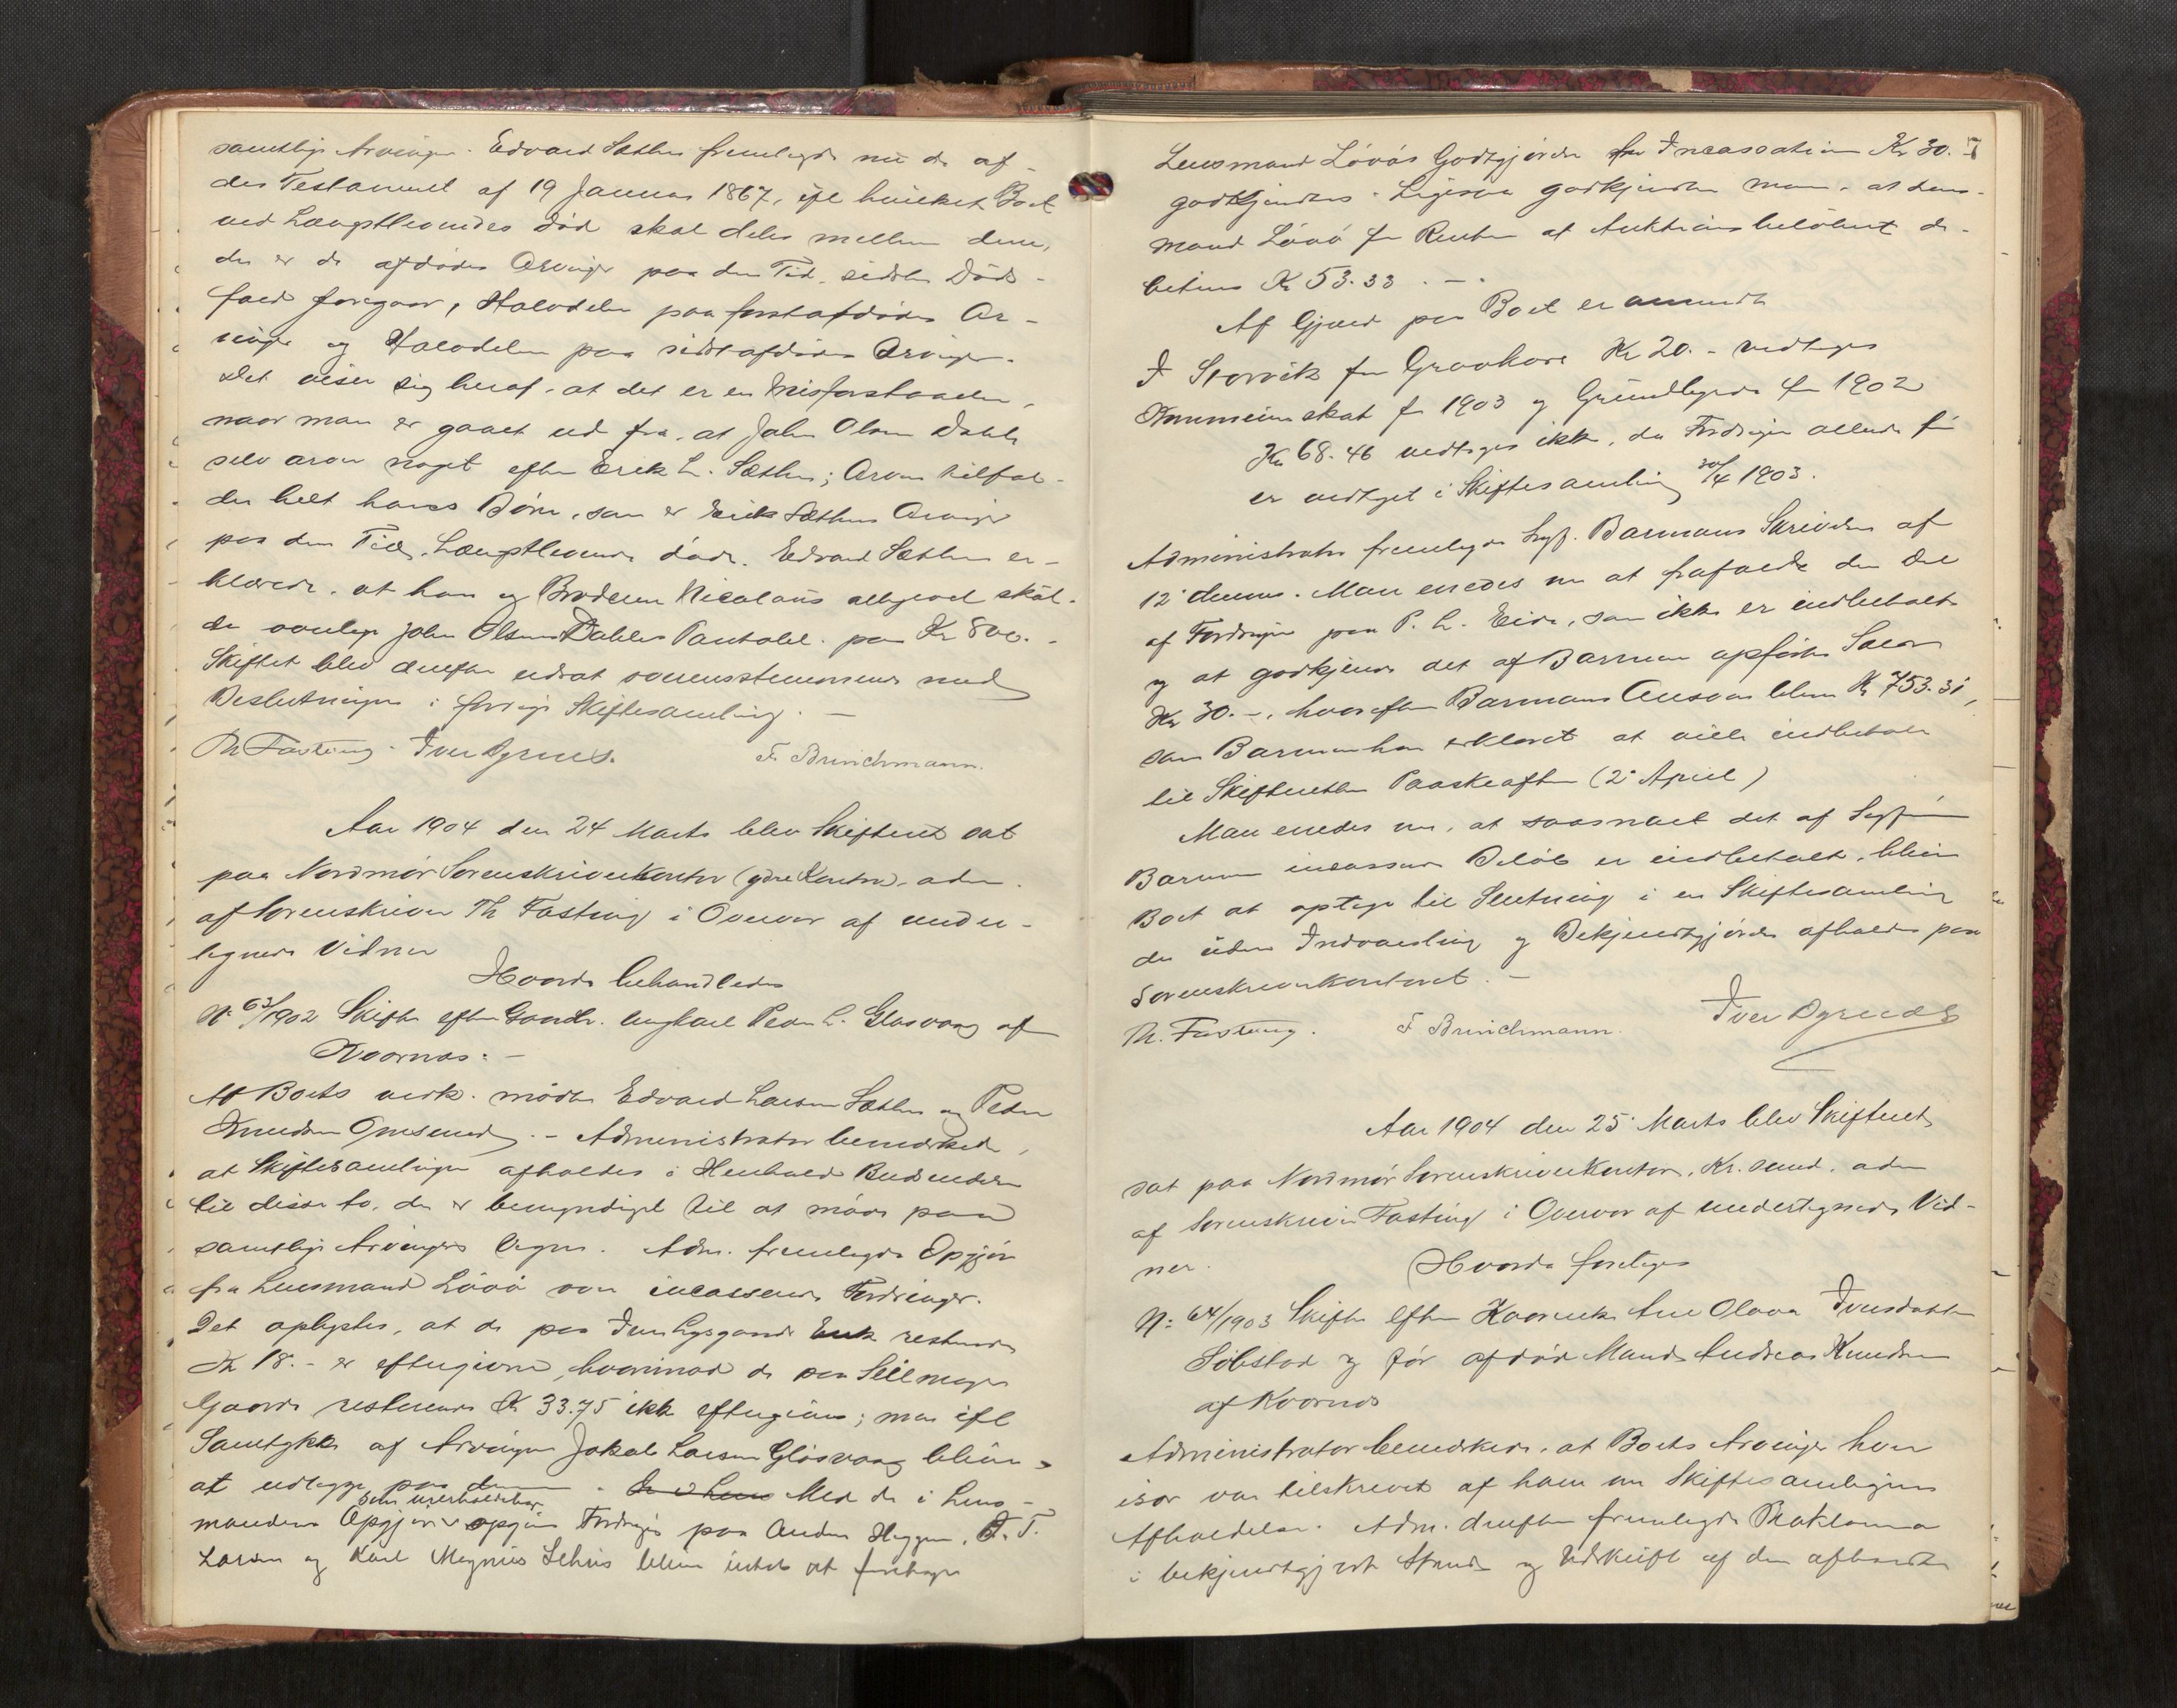 samtlige Arvinger. Edvard Sæther fremlagde nu de af-
des Testament af 19 Januar 1867, ifl hvilket Boet
ved Længstlevendes Død skal deles mellem dem,
der er de afdødes Arvinger paa den Tid, sidste Døds-
fald foregaar, Halvdelen paa førstafdødes Ar-
vinger og Halvdelen paa sidstafdødes Arvinger.
Det viser sig heraf, at det er en Misforstaaelse,
naar man er gaaet ud fra, at John Olsen Dahle
selv arver noget efter Erik L. Sæther; Arven tilfal-
der helt hans Børn, som er Erik Sæthers Arvinger
paa den Tid, Længstlevende døde. Edvard Sæther er-
klærede, at han og Broderen Nicolaus alligevel skul-
de John Olsen Dahles Pantobl. paa Kr 800.-
Skiftet blev derefter udsat overensstemmende med
Beslutningen i forrige Skiftesamling. -
Th Fasting. Iver Øgrueds. F. Brinchmann.
Aar 1904 den 24 Marts blev Skifteret sat
paa Nordmør Sorenskriverkontor (ydre Kontor), adm.
af Sorenskriver Th Fasting i Overvær af under-
tegnede Vidner
Hvorda behandledes
No 63/1902 Skifte efter Gaardbr. ungkarl Peder L. Glasvaag af
Kværnæs: -
I Boets mødte Edvard Larsen Sæther og Peder
Knudsen . - Administrator bemærkede,
at Skiftesamlingen afholdes i Henhold
til disse to, der er bemyndiget til at møde paa
samtlige Arvingers Vegne. Adm. fremlagde Opgjør
fra Lensmand Løvø over incasserede Fordringer.
Det oplystes, at de paa restende
Kr 18.- er eftergivne, hvorimod de paa
Gaarde resterende Kr 33.75 ikke eftergives; men ifl
Samtykke af Arvingen Jakob Larsen Glasvaag bliver
at udlægge paa denne. Med de i Lens-
mandens Opgjør som uerholdelige opgivne Fordringer paa Anders Heggem, F. T.
Larsen og Karl Magnus bliver intet at foretage
7
Lensmand Løvøs Godtgjørelse for Incassation Kr 30.-
godkjendtes. Ligesaa godkjendte man, at Lens-
mand Løvø for Renter af Auktionsbeløbet de-
biteres Kr 53.33. -
Af Gjæld paa Boet er anmeldt
I Storvik for Gravhave Kr 20.- vedtages
Kommuneskat for 1903 og Grundlagende for 1902
Kr 68.46 vedtages ikke, da Fordringen allerede før
er vedtaget i Skiftesamling 30/4 1903.
Administrator fremlagde Sagf. Barmans Skrivelse af
12' dennes. Man enedes om at frafalde den Del
af Fordringen paa P. L. Eide, som ikke er indbetalt
og at godkjende det af Barman opførte Salær
Kr 30.-, hvorefter Barmans Ansvar bliver Kr 753.31,
som Barman har erklæret at ville indbetale
til Skifteretten Paaskeaften (2' April)
Man enedes om, at saasnart det af Sagfør
Barman incasserede Beløb er indbetalt, bliver
Boet at optage til Slutning i en Skiftesamling
der uden Indvarsling og Bekjendtgjørelse afholdes paa
Sorenskriverkontoret. -
Th. Fasting. F Brinchmann. Iver Øgrueds
Aar 1904 den 25' Marts blev Skifteret
sat paa Nordmør Sorenskriverkontor, Kr.sund, adm
af Sorenskriver Fasting i Overvær af undertegnede Vid-
ner.
Hvorda foretages
No 64/1903 Skifte efter Ane Olava Iversdatter
Sølestad og før afdøde Mand Andreas Knudsen
af Kværnæs
Administrator bemærkede, at Boets Arvinger hver
især var tilskrevet af ham om Skiftesamlingens
Afholdelse. Adm. derefter fremlagde Proklama
i bekjendtgjort Stand og Udskrift af den afholdte